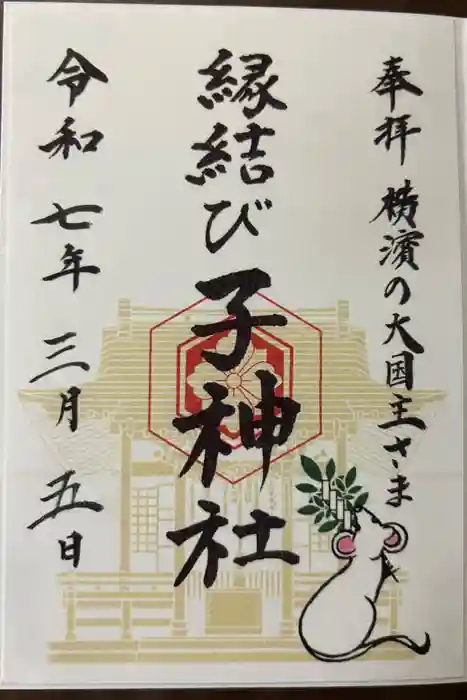 奉拝 横濱の大国主さま
縁結び
子神社
令和七年三月五日